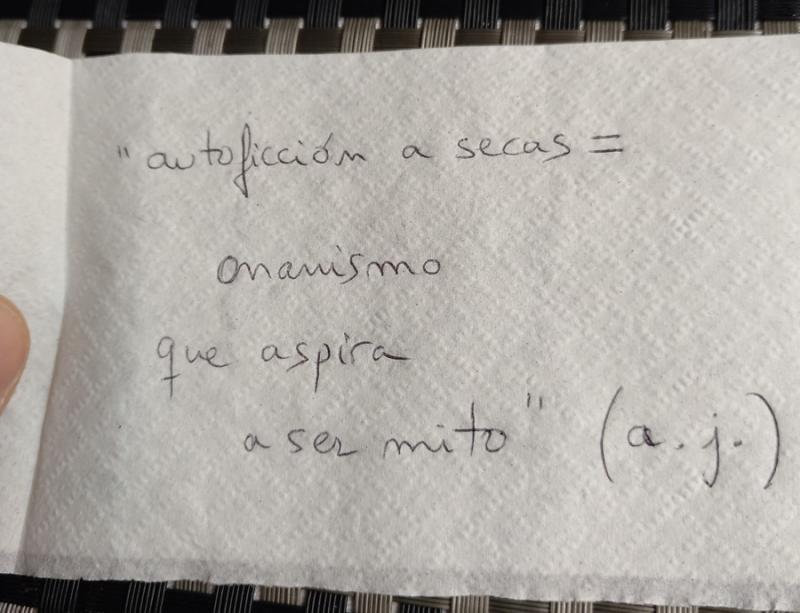 "autoficción a secas =
onanismo
que aspira
a ser mito" (a. j.)